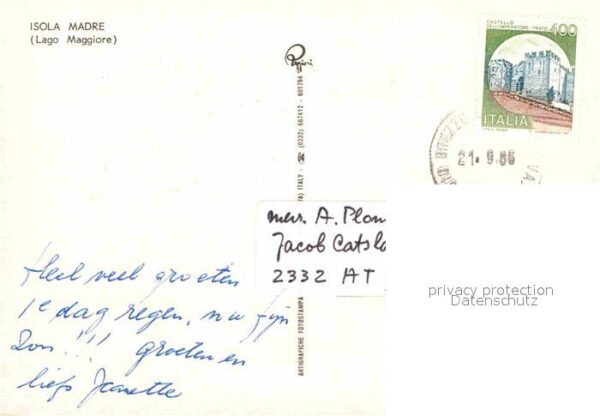 ISOLA MADRE
(Lago Maggiore)
CASTELLO
DELL'IMPERATORE - PRATO
400
ITALIA
21. 9.86
(VA) ITALY - ☎ (0332) 667412 - 601764
ARTIGRAFICHE FOTOSTAMPA
mevr. A. Plom
Jacob Catsla
2332 AT
privacy protection
Datenschutz
Heel veel groeten
1e dag regen, nu fijn
Zon!!! groeten en
liefs Jeanette